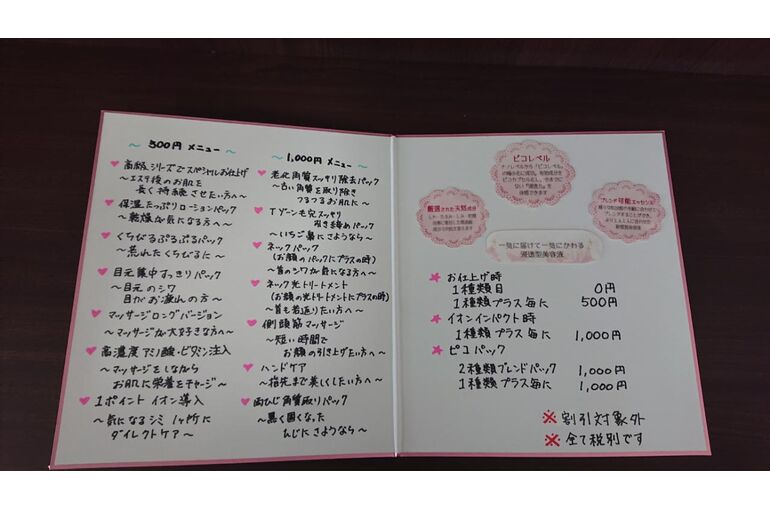 ~ 500円 メニュー ~
♥ 高級シリーズでスペシャルお仕上げ
~エステ後のお肌を
長く持続させたい方へ~
♥ 保湿たっぷりローションパック
~乾燥が気になる方へ~
♥ くちびるぷるぷるパック
~荒れたくちびるに~
♥ 目元集中すっきりパック
~目元のシワ
目がお疲れの方~
♥ マッサージロングバージョン
~マッサージが大好きな方へ~
♥ 高濃度アミノ酸・ビタミン注入
~マッサージをしながら
お肌に栄養をチャージ~
♥ 1ポイント イオン導入
~気になるシミ 1ヶ所に
ダイレクトケア~
~ 1,000円 メニュー ~
♥ 老化角質スッキリ除去パック
~古い角質を取り除き
つるつるお肌に~
♥ Tゾーン毛穴スッキリ
引き締めパック
~いちご鼻にさようなら~
♥ ネックパック
(お顔のパックにプラスの時)
~首のシワが気になる方へ~
♥ ネック光トリートメント
(お顔の光トリートメントにプラスの時)
~首も若返りたい方へ~
♥ 側頭筋マッサージ
~短い時間で
お顔の引き上げたい方へ~
♥ ハンドケア
~指先まで美しくしたい方へ~
♥ 両ひじ角質取りパック
~黒く固くなった
ひじにさようなら~
ピコレベル
ナノレベルから「ピコレベル」
厳選された天然成分
ブレンド可能エッセンス
一気に届けて一気にかわる
浸透型美容液
★ お仕上げ時
1種類目 0円
1種類プラス毎に 500円
★ イオンインパクト時
1種類プラス毎に 1,000円
★ ピコパック
2種類ブレンドパック 1,000円
1種類プラス毎に 1,000円
※ 割引対象外
※ 全て税別です